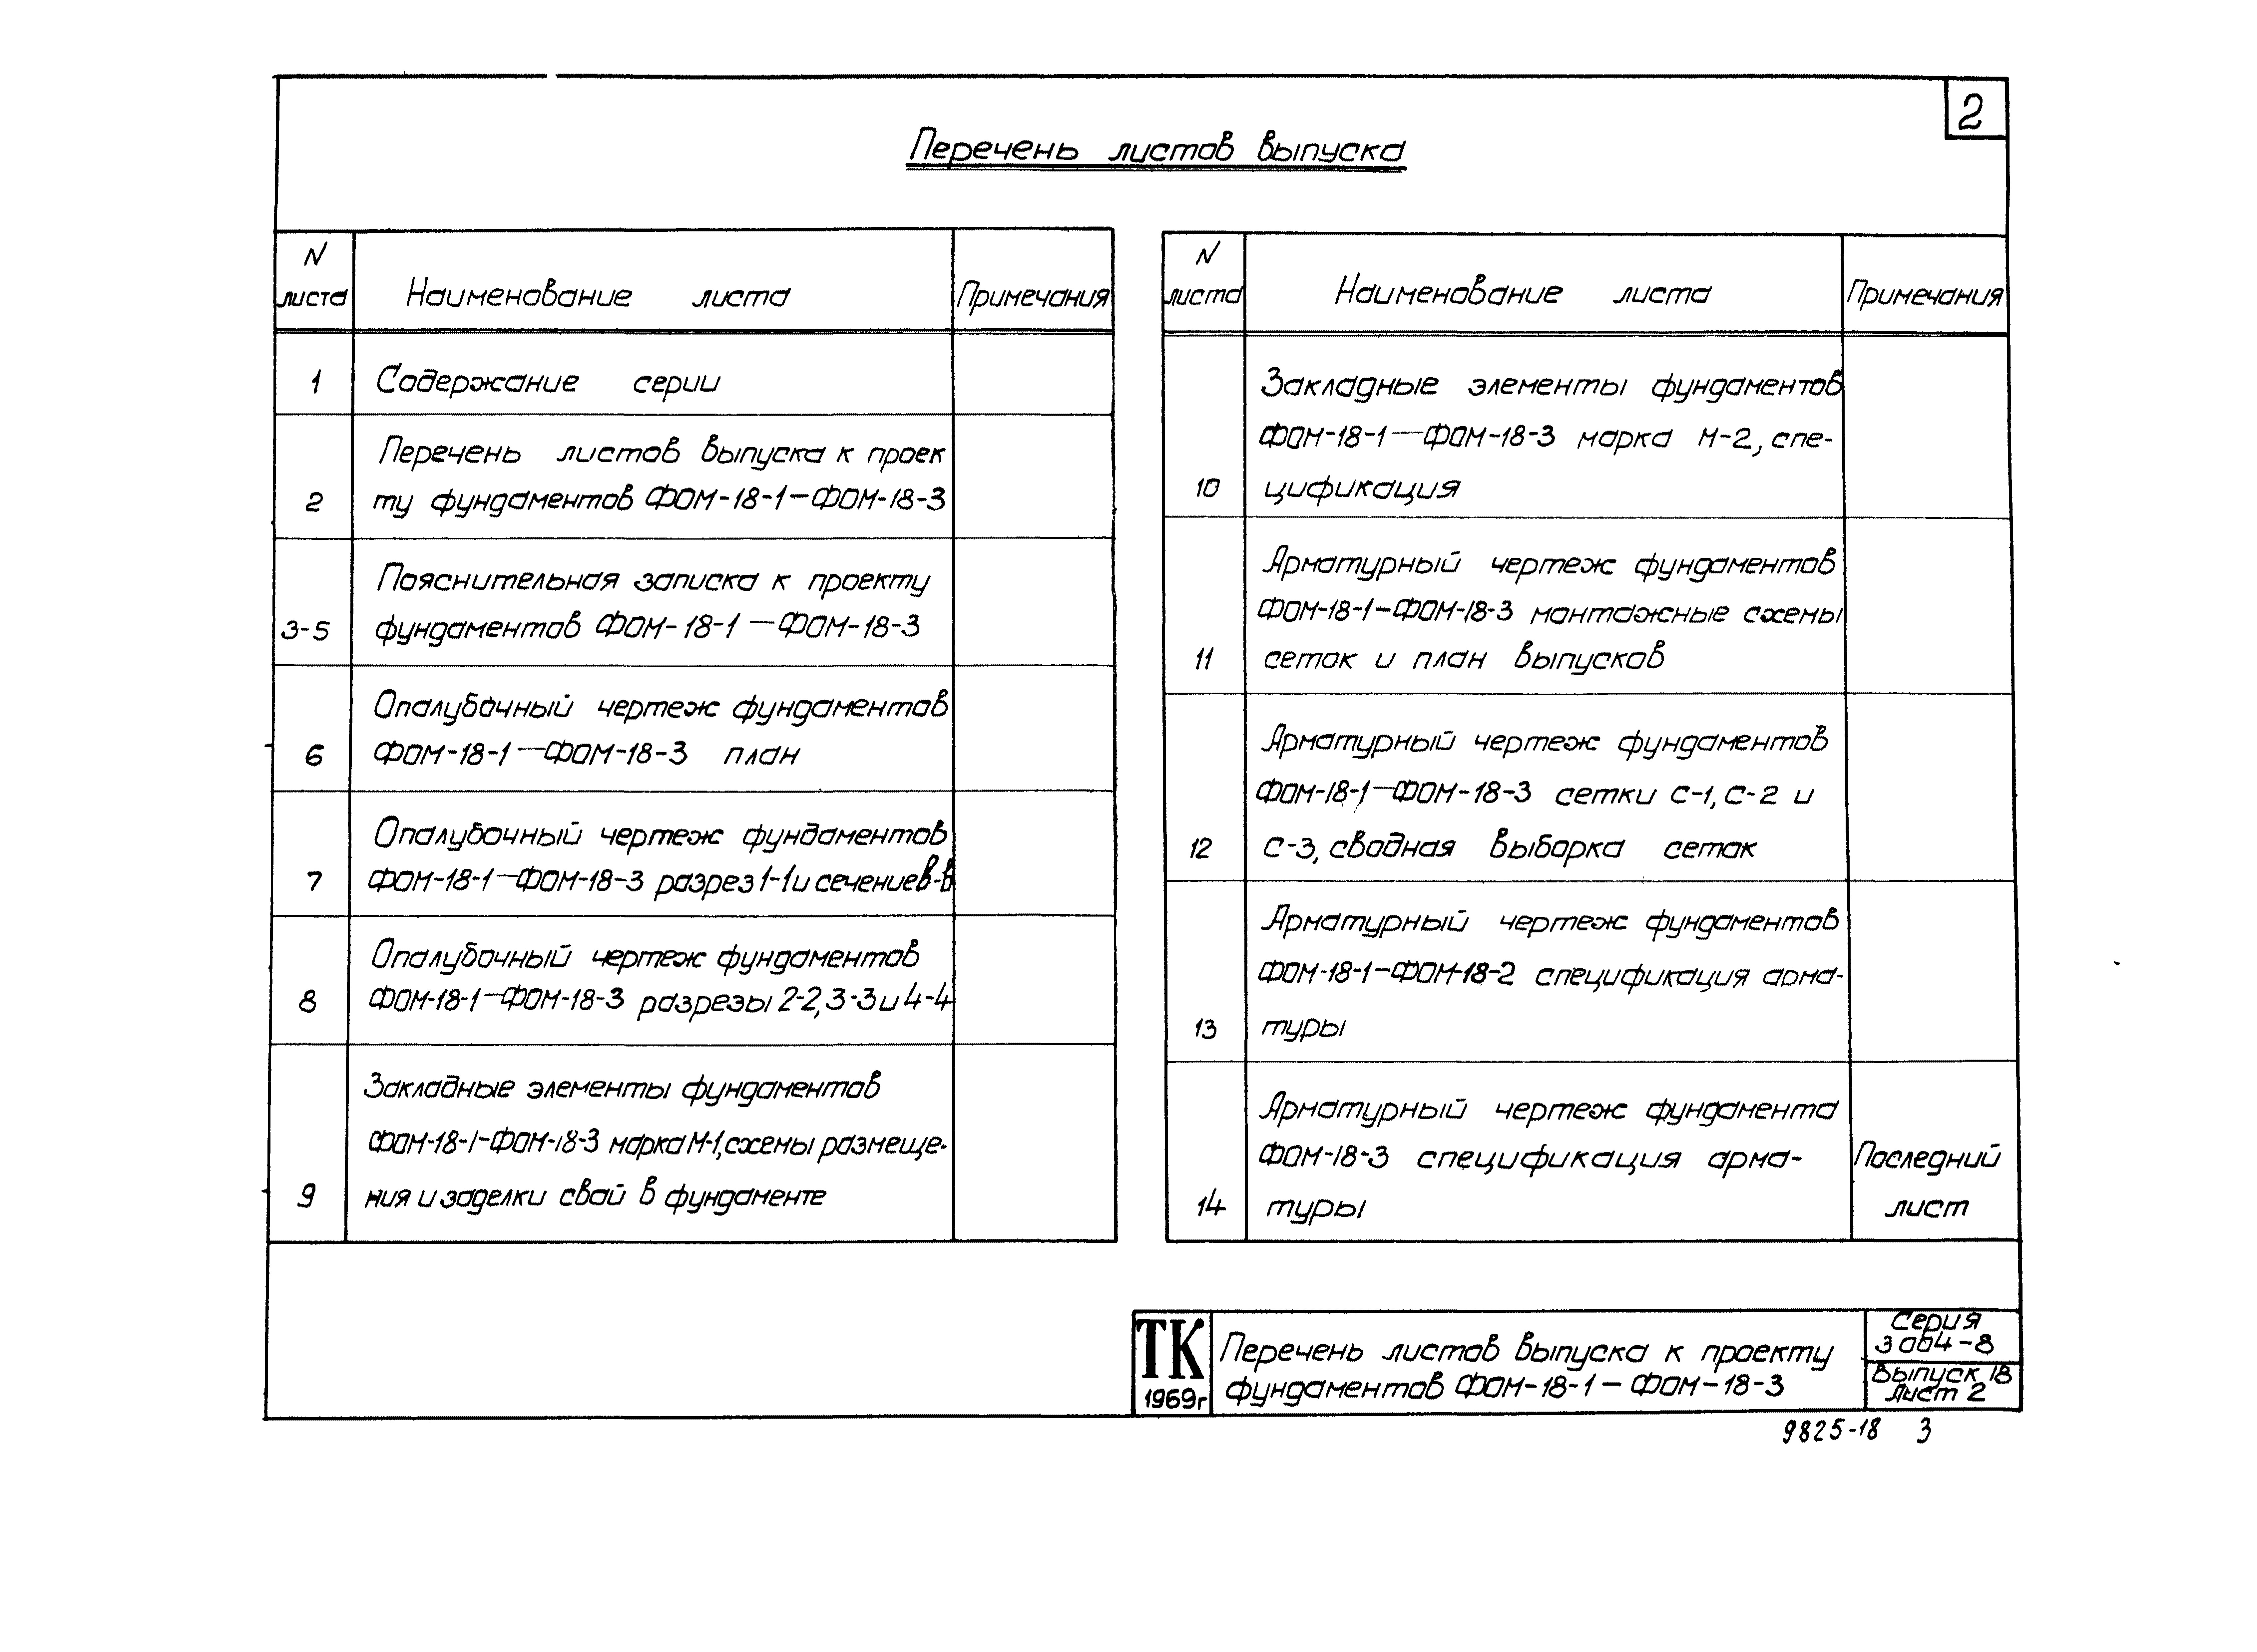 2
Перечень листов выпуска
N листа
Наименование листа
Примечания
1
Содержание серии
2
Перечень листов выпуска к проек
ту фундаментов ФОМ-18-1—ФОМ-18-3
3-5
Пояснительная записка к проекту
фундаментов ФОМ-18-1—ФОМ-18-3
6
Опалубочный чертеж фундаментов
ФОМ-18-1—ФОМ-18-3 план
7
Опалубочный чертеж фундаментов
ФОМ-18-1—ФОМ-18-3 разрез 1-1 и сечение В-В
8
Опалубочный чертеж фундаментов
ФОМ-18-1—ФОМ-18-3 разрезы 2-2, 3-3 и 4-4
9
Закладные элементы фундаментов
ФОМ-18-1-ФОМ-18-3 марка М-1, схемы размеще-
ния и заделки свай в фундаменте
N листа
Наименование листа
Примечания
10
Закладные элементы фундаментов
ФОМ-18-1—ФОМ-18-3 марка М-2, спе-
цификация
11
Арматурный чертеж фундаментов
ФОМ-18-1—ФОМ-18-3 монтажные схемы
сеток и план выпусков
12
Арматурный чертеж фундаментов
ФОМ-18-1—ФОМ-18-3 сетки С-1, С-2 и
С-3, сводная выборка сеток
13
Арматурный чертеж фундаментов
ФОМ-18-1—ФОМ-18-2 спецификация арма-
туры
14
Арматурный чертеж фундамента
ФОМ-18-3 спецификация арма-
туры
Последний
лист
ТК
1969г
Перечень листов выпуска к проекту
фундаментов ФОМ-18-1—ФОМ-18-3
Серия
3 004-8
Выпуск 18
Лист 2
9825-18 3